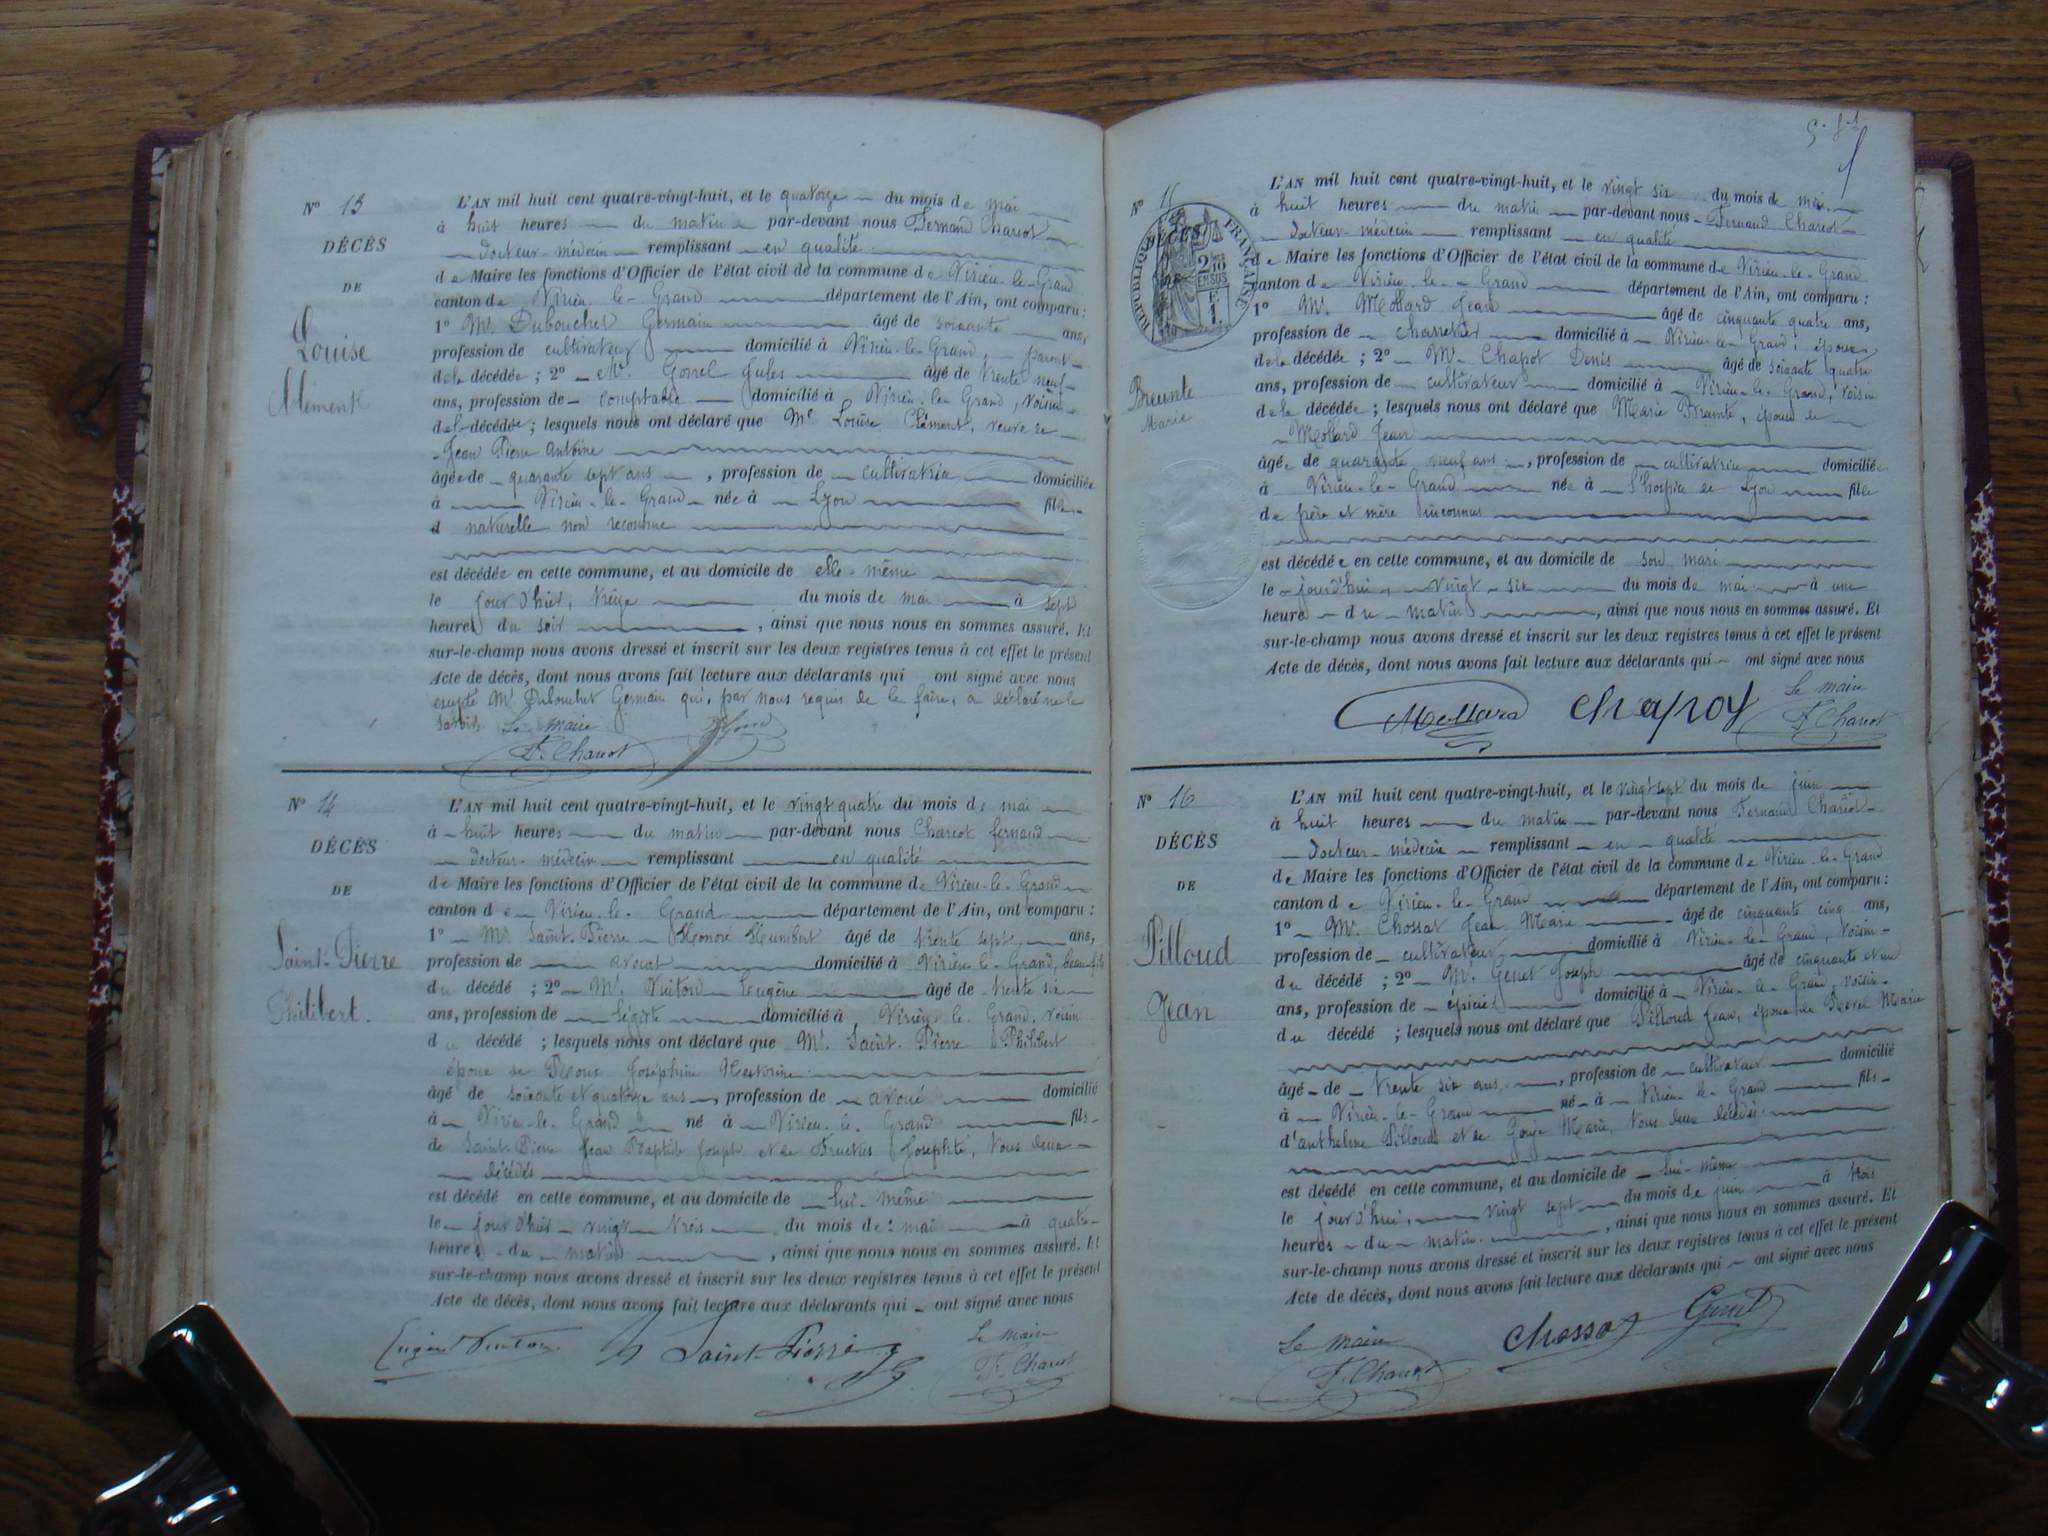 N° 13
DÉCÈS
DE
Louise
Clément
L'AN mil huit cent quatre-vingt-huit, et le quatorze du mois de mai
à huit heures du matin par-devant nous Fernand Charcot
docteur-médecin remplissant en qualité
de Maire les fonctions d'Officier de l'état civil de la commune de Virieu-le-Grand
canton de Virieu-le-Grand département de l'Ain, ont comparu :
1° Mr Dubouchet Germain âgé de soixante ans,
profession de cultivateur domicilié à Virieu-le-Grand, parent
de la décédée ; 2° Mr Gorrel Jules âgé de trente neuf
ans, profession de comptable domicilié à Virieu-le-Grand, voisin
de la décédée ; lesquels nous ont déclaré que Me Louise Clément, veuve de
Jean Pierre Antoine
âgée de quarante sept ans , profession de cultivatrice domiciliée
à Virieu-le-Grand née à Lyon fille
d naturelle non reconnue
est décédée en cette commune, et au domicile de elle-même
le jour d'hier, treize du mois de mai à sept
heures du soir , ainsi que nous nous en sommes assuré. Et
sur-le-champ nous avons dressé et inscrit sur les deux registres tenus à cet effet le présent
Acte de décès, dont nous avons fait lecture aux déclarants qui ont signé avec nous
excepté Mr Dubouchet Germain qui, par nous requis de le faire, a déclaré ne le
savoir Le maire
F. Charcot
N° 14
DÉCÈS
DE
Saint-Pierre
Philibert
L'AN mil huit cent quatre-vingt-huit, et le vingt quatre du mois de mai
à huit heures du matin par-devant nous Charcot fernand
docteur-médecin remplissant en qualité
de Maire les fonctions d'Officier de l'état civil de la commune de Virieu-le-Grand
canton de Virieu-le-Grand département de l'Ain, ont comparu :
1° Mr Saint-Pierre Honoré Humbert âgé de trente sept ans,
profession de avocat domicilié à Virieu-le-Grand, beau-fils
du décédé ; 2° Mr Vuiton Eugène âgé de trente six
ans, profession de légiste domicilié à Virieu-le-Grand, voisin
du décédé ; lesquels nous ont déclaré que Mr Saint-Pierre Philibert
époux de Roux Joséphine
âgé de soixante et quatorze ans , profession de avoué domicilié
à Virieu-le-Grand né à Virieu-le-Grand fils
de Saint-Pierre Jean Baptiste Joseph et de Josephte, tous deux
décédés
est décédé en cette commune, et au domicile de lui-même
le jour d'hier vingt trois du mois de mai à quatre
heures du matin , ainsi que nous nous en sommes assuré. Et
sur-le-champ nous avons dressé et inscrit sur les deux registres tenus à cet effet le présent
Acte de décès, dont nous avons fait lecture aux déclarants qui ont signé avec nous
Eugène Vuiton H Saint-Pierre Le maire
F. Charcot
N° 15
RÉPUBLIQUE FRANÇAISE
2/10 EN SUS
DÉCÈS
Breunte
Marie
L'AN mil huit cent quatre-vingt-huit, et le vingt six du mois de mai
à huit heures du matin par-devant nous Fernand Charcot
docteur-médecin remplissant en qualité
de Maire les fonctions d'Officier de l'état civil de la commune de Virieu-le-Grand
canton de Virieu-le-Grand département de l'Ain, ont comparu :
1° Mr Mollard Jean âgé de cinquante quatre ans,
profession de charretier domicilié à Virieu-le-Grand, époux
de la décédée ; 2° Mr Chapot Denis âgé de soixante quatre
ans, profession de cultivateur domicilié à Virieu-le-Grand, voisin
de la décédée ; lesquels nous ont déclaré que Marie Breunte, épouse de
Mollard Jean
âgée de quarante neuf ans , profession de cultivatrice domiciliée
à Virieu-le-Grand née à l'hospice de Lyon fille
de père et mère inconnus
est décédée en cette commune, et au domicile de son mari
le jourd'hui, vingt-six du mois de mai à une
heure du matin , ainsi que nous nous en sommes assuré. Et
sur-le-champ nous avons dressé et inscrit sur les deux registres tenus à cet effet le présent
Acte de décès, dont nous avons fait lecture aux déclarants qui ont signé avec nous
Mollard Chapot Le maire
F. Charcot
N° 16
DÉCÈS
DE
Pilloud
Jean
L'AN mil huit cent quatre-vingt-huit, et le vingt sept du mois de juin
à huit heures du matin par-devant nous Fernand Charcot
docteur-médecin remplissant en qualité
de Maire les fonctions d'Officier de l'état civil de la commune de Virieu-le-Grand
canton de Virieu-le-Grand département de l'Ain, ont comparu :
1° Mr Chossat Jean Marie âgé de cinquante cinq ans,
profession de cultivateur domicilié à Virieu-le-Grand, voisin
du décédé ; 2° Mr Genet Joseph âgé de cinquante et un
ans, profession de épicier domicilié à Virieu-le-Grand, voisin
du décédé ; lesquels nous ont déclaré que Pilloud Jean, époux de Revel Marie
âgé de trente six ans , profession de cultivateur domicilié
à Virieu-le-Grand né à Virieu-le-Grand fils
d'anthelme Pilloud et de Gouje Marie, tous deux décédés
est décédé en cette commune, et au domicile de lui-même
le jourd'hui, vingt sept du mois de juin à trois
heures du matin , ainsi que nous nous en sommes assuré. Et
sur-le-champ nous avons dressé et inscrit sur les deux registres tenus à cet effet le présent
Acte de décès, dont nous avons fait lecture aux déclarants qui ont signé avec nous
Le maire Chossat Genet
F. Charcot